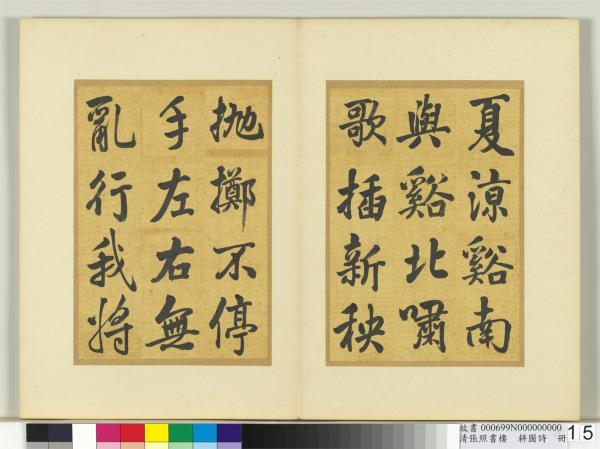 夏涼谿南
與谿北嘯
歌插新秧
拋擲不停
手左右無
亂行我將
故書 000699N000000000
清張照書樓 耕圖詩 冊
15